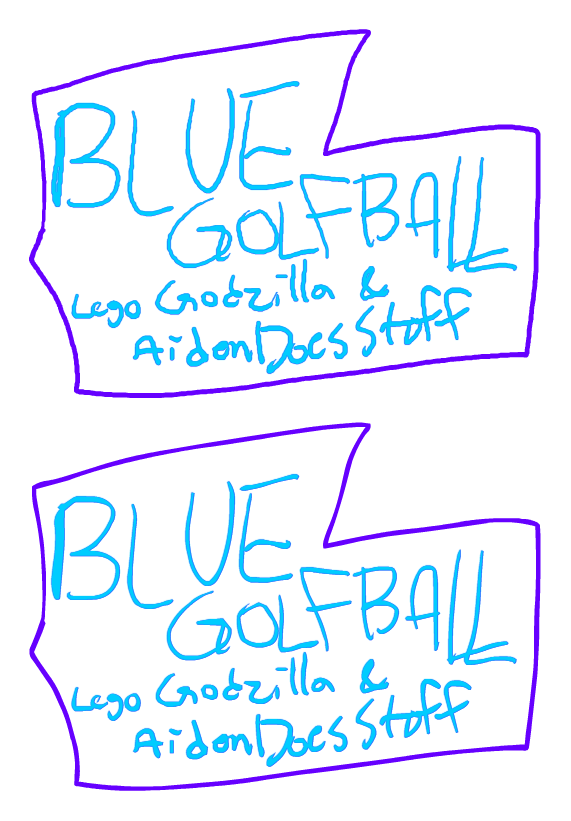 BLUE
GOLFBALL
Lego Godzilla &
AidonDoesStuff
BLUE
GOLFBALL
Lego Godzilla &
AidonDoesStuff